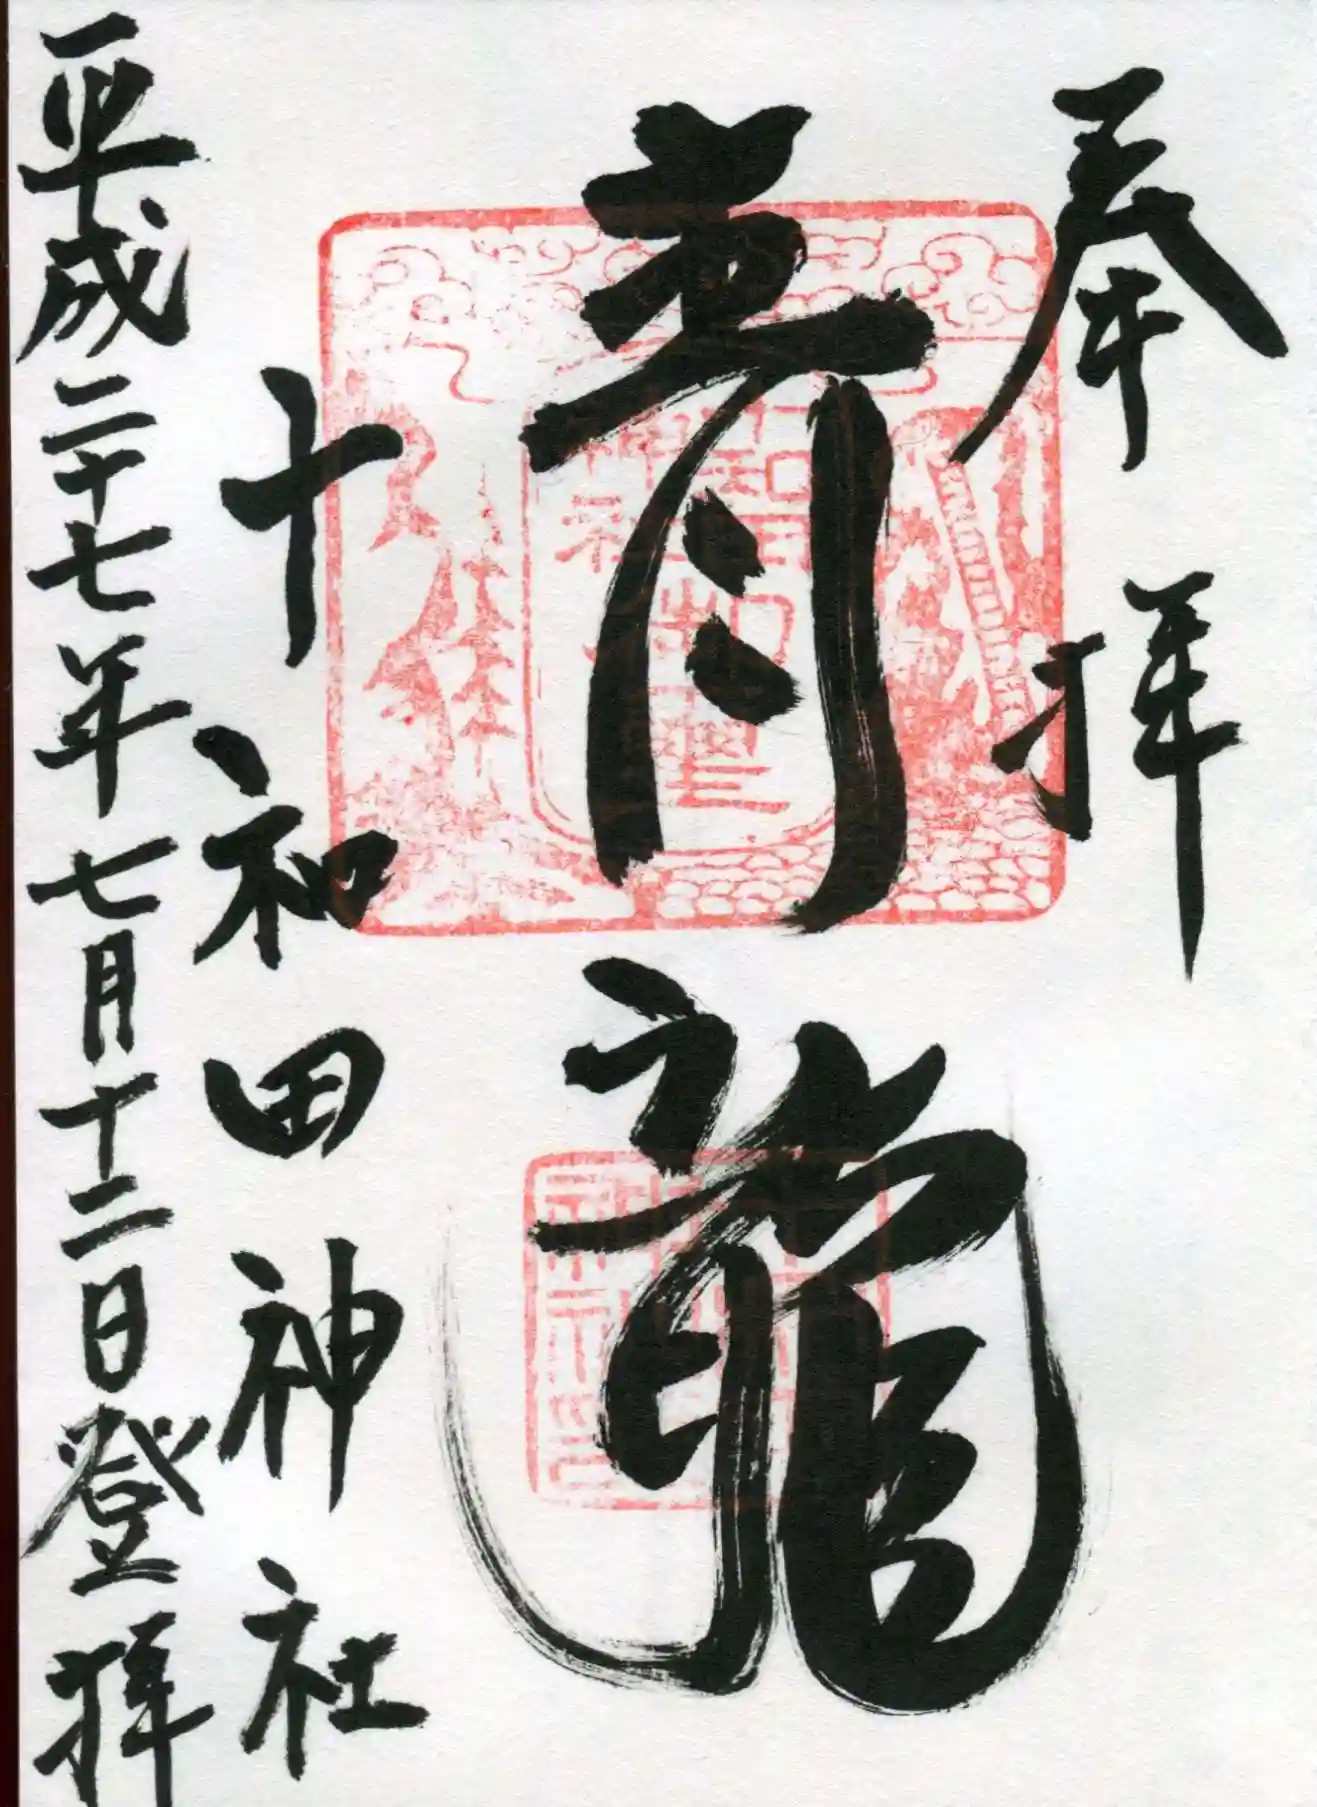 奉拝
青龍
十和田神社
平成二十七年七月十二日登拝